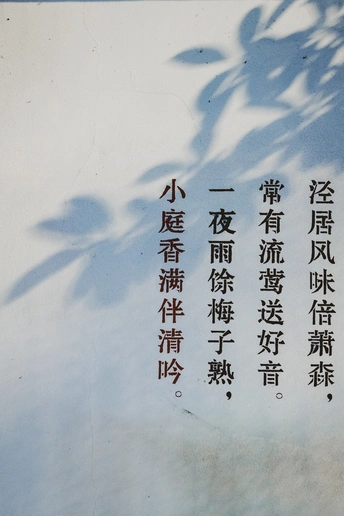 泾居风味倍萧森，
常有流莺送好音。
一夜雨馀梅子熟，
小庭香满伴清吟。